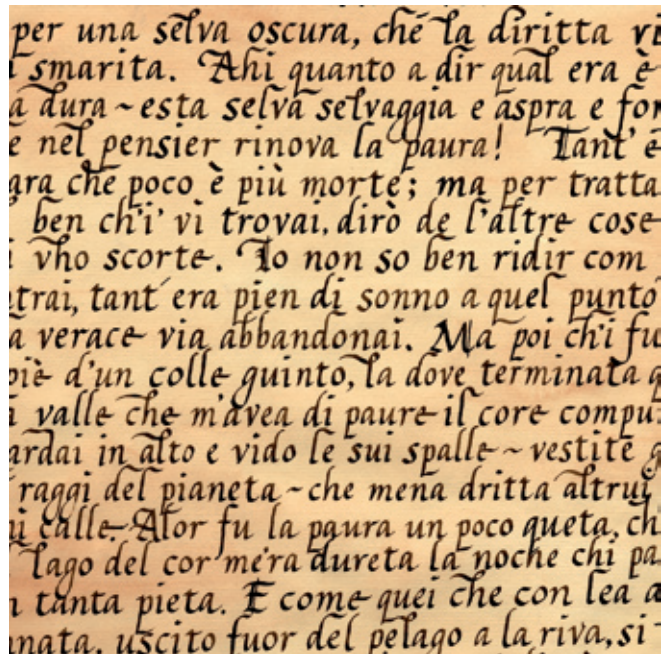 per una selva oscura, ché la diritta vi
smarita. Ahi quanto a dir qual era è
a dura ~ esta selva selvaggia e aspra e for
e nel pensier rinova la paura! Tant' è
ara che poco è più morte; ma per tratta
ben ch'i' vi trovai, dirò de l'altre cose
i vho scorte. Io non so ben ridir com
trai, tant' era pien di sonno a quel punto
a verace via abbandonai. Ma poi ch'i fu
piè d'un colle guinto, la dove terminata q
a valle che m'avea di paure il core compu
ardai in alto e vido le sui spalle ~ vestite g
raggi del pianeta ~ che mena dritta altrui
ni calle. Alor fu la paura un poco queta, ch
lago del cor me'ra dureta la noche chi pa
n tanta pieta. E come quei che con lea a
nnata, uscito fuor del pelago a la riva, si